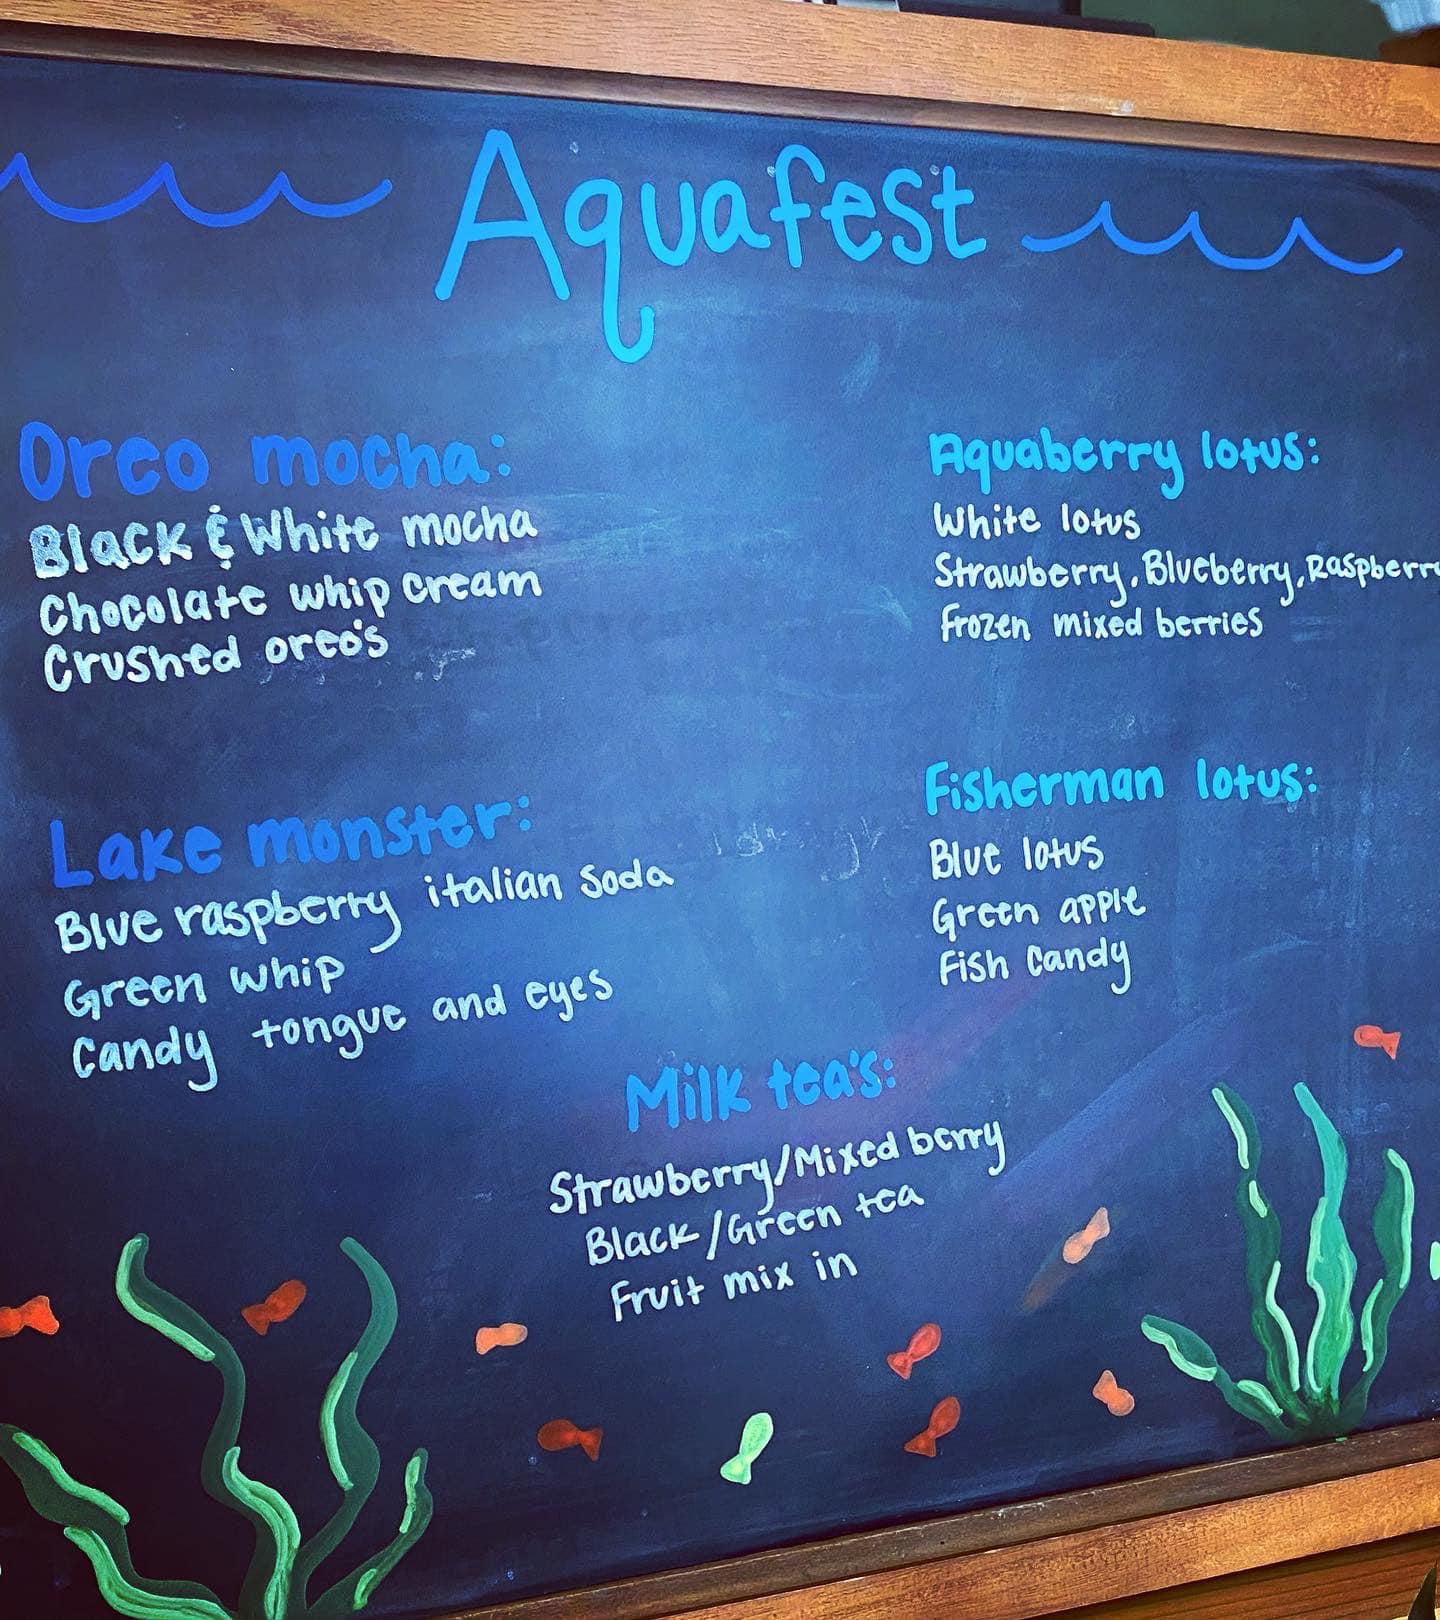 Aquafest
Oreo mocha:
Black & White mocha
Chocolate whip cream
Crushed oreo's
Lake monster:
Blue raspberry italian soda
Green whip
Candy tongue and eyes
Aquaberry lotus:
White lotus
Strawberry, Blueberry, Raspberry
Frozen mixed berries
Fisherman lotus:
Blue lotus
Green apple
Fish Candy
Milk tea's:
Strawberry/Mixed berry
Black/Green tea
Fruit mix in